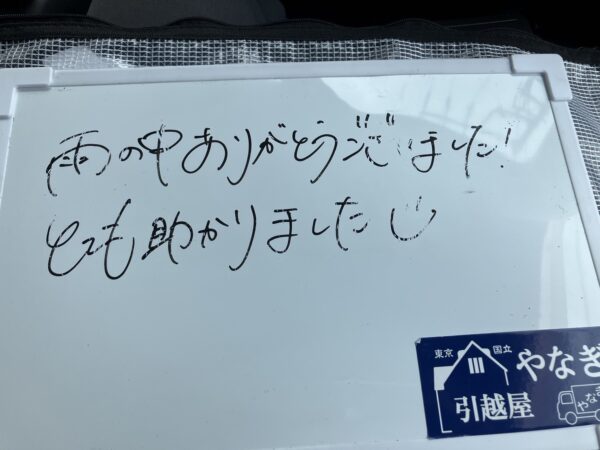 雨の中ありがとうございました!
とても助かりました
東京 国立 やなぎ
引越屋
やなぎ